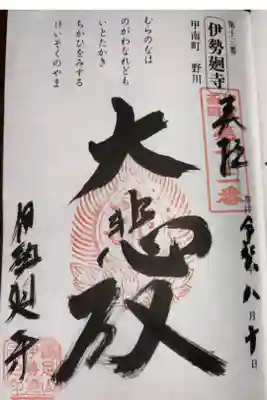 第十三番
伊勢廻寺
甲南町 野川
むらのなは
のがわなれども
いとたかき
ちかひをみする
けいそくのやま
奉拝
大悲殿
伊勢廻寺
八月十日